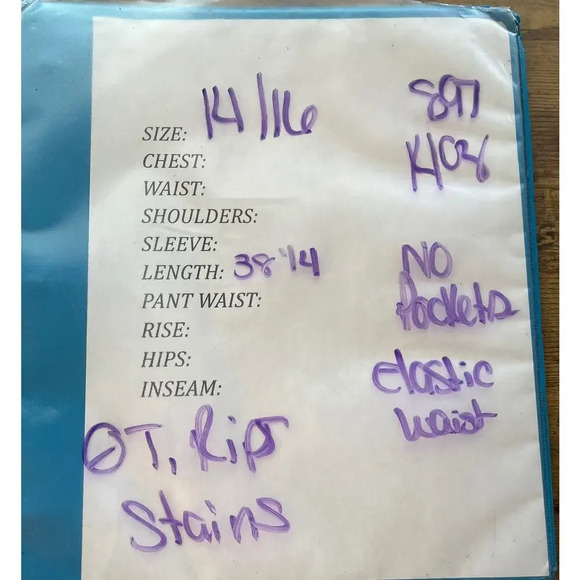 SIZE: 14/16
CHEST:
WAIST:
SHOULDERS:
SLEEVE:
LENGTH: 38 1/4
PANT WAIST:
RISE:
HIPS:
INSEAM:
Ø T, Rips
Stains
897
1408
NO
Pockets
elastic
waist